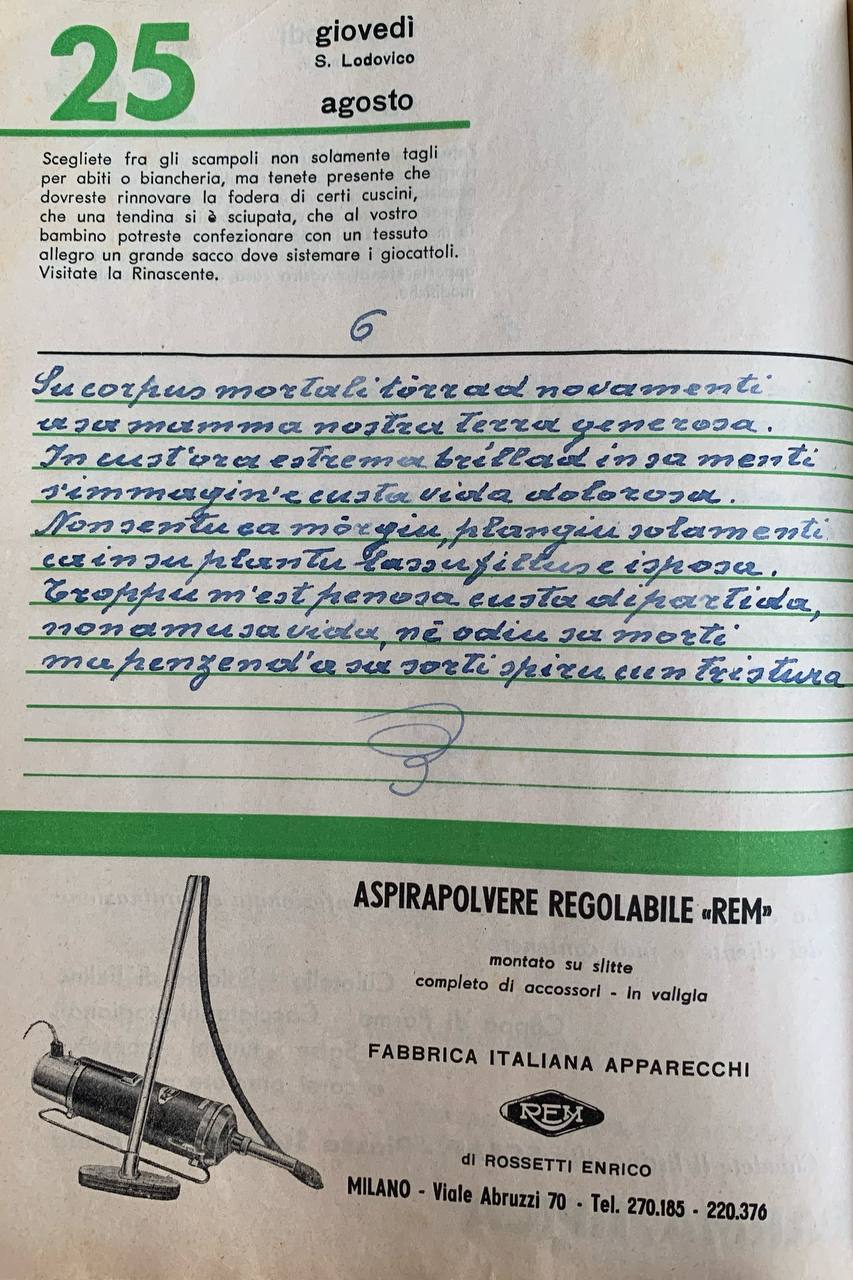 25
giovedì
S. Lodovico
agosto
Scegliete fra gli scampoli non solamente tagli
per abiti o biancheria, ma tenete presente che
dovreste rinnovare la fodera di certi cuscini,
che una tendina si è sciupata, che al vostro
bambino potreste confezionare con un tessuto
allegro un grande sacco dove sistemare i giocattoli.
Visitate la Rinascente.
6
Su corpus mortali tòrrad novamenti
a sa mamma nostra terra generosa.
In cust'ora estrema brillad in sa menti
s'immagin'e custa vida dolorosa.
Non sentu ca mòrgiu, plangiu solamenti
ca in su plantu lassu fillus e isposa.
Troppu m'est penosa custa dipartida,
non amu sa vida, nè odiu sa morti
ma penzend'a sa sorti spiru cun tristura
ASPIRAPOLVERE REGOLABILE «REM»
montato su slitte
completo di accossori - in valigia
FABBRICA ITALIANA APPARECCHI
REM
di ROSSETTI ENRICO
MILANO - Viale Abruzzi 70 - Tel. 270.185 - 220.376